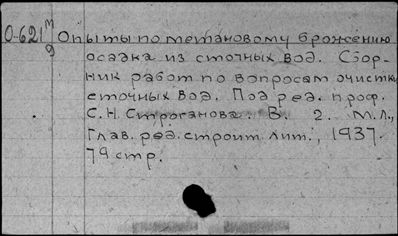 О-621 м/9 Опыты по метановому брожению
осадка из сточных вод. Сбор-
ник работ по вопросам очистки
сточных вод. Под ред. проф.
С.Н. Строганова. В. 2. М.Л.,
Глав. ред. строит. лит., 1937.
79 стр.